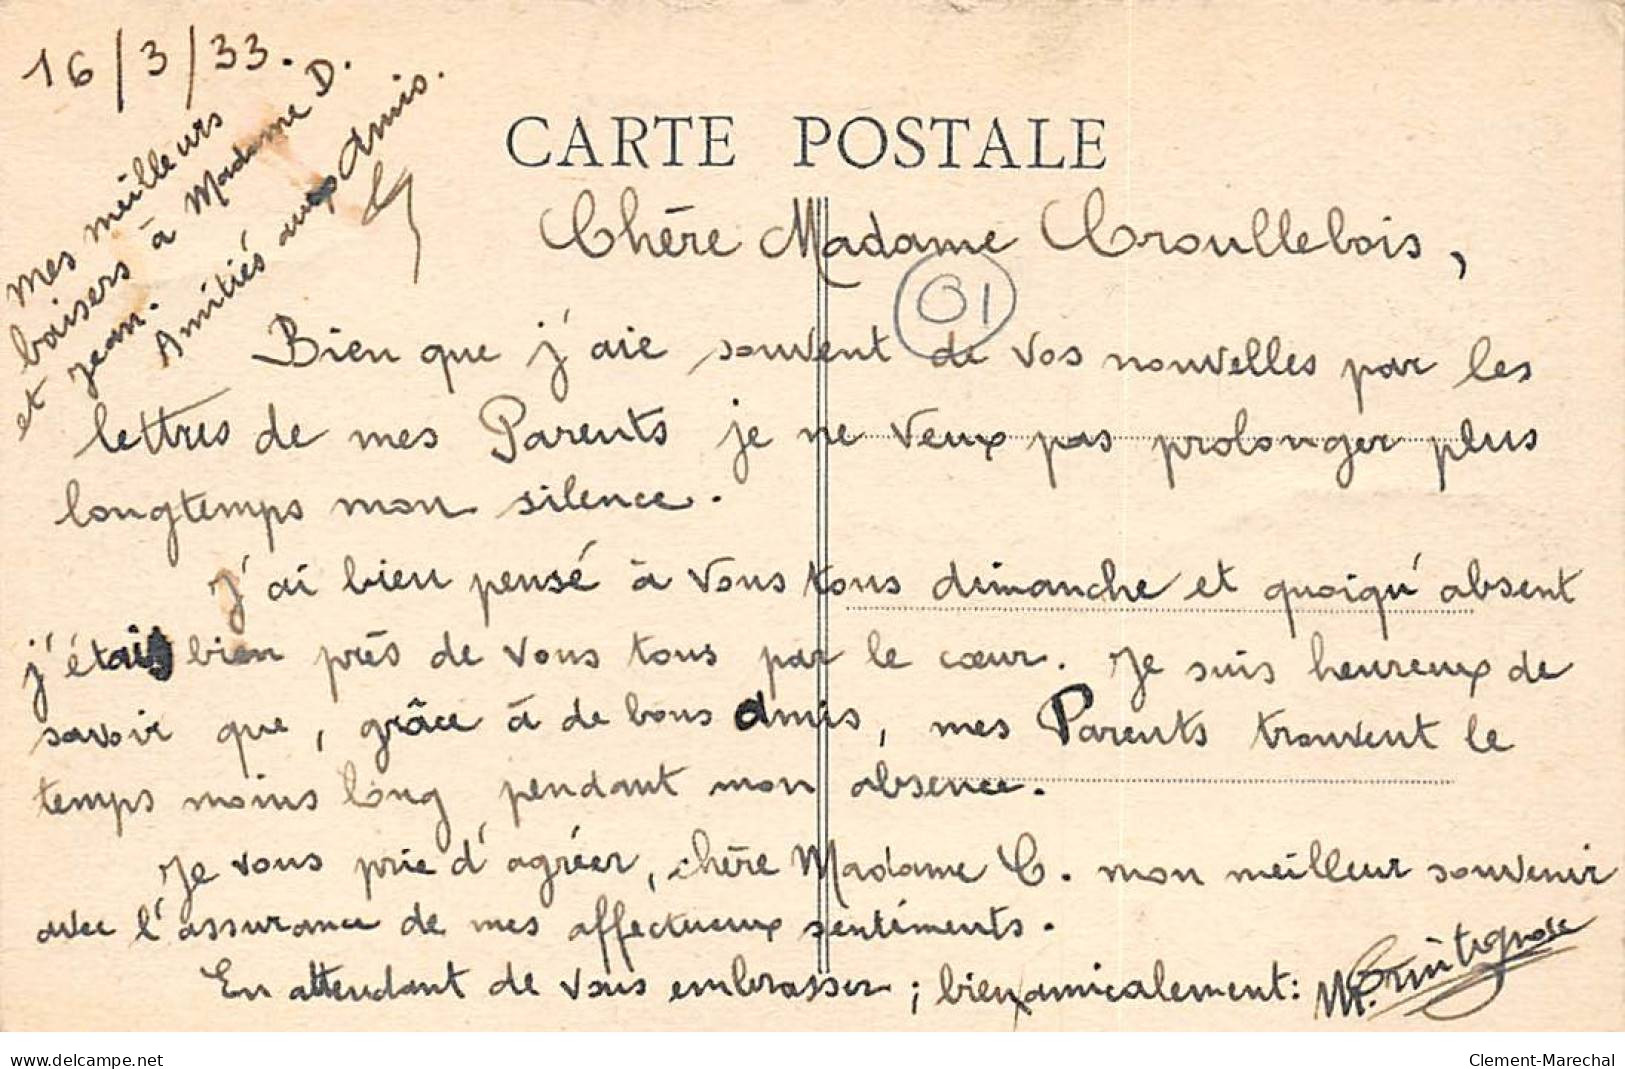 16/3/33.
mes meilleurs
baisers à Madame D.
et Jean.
Amitiés aux Amis.
CARTE POSTALE
Chère Madame Croullebois,
01
Bien que j'aie souvent de vos nouvelles par les
lettres de mes Parents je ne veux pas prolonger plus
longtemps mon silence.
J'ai bien pensé à vous tous dimanche et quoiqu'absent
j'étais bien près de vous tous par le cœur. Je suis heureux de
savoir que, grâce à de bons amis, mes Parents trouvent le
temps moins long pendant mon absence.
Je vous prie d'agréer, chère Madame C. mon meilleur souvenir
avec l'assurance de mes affectueux sentiments.
En attendant de vous embrasser ; bien amicalement:
www.delcampe.net
Clement-Marechal